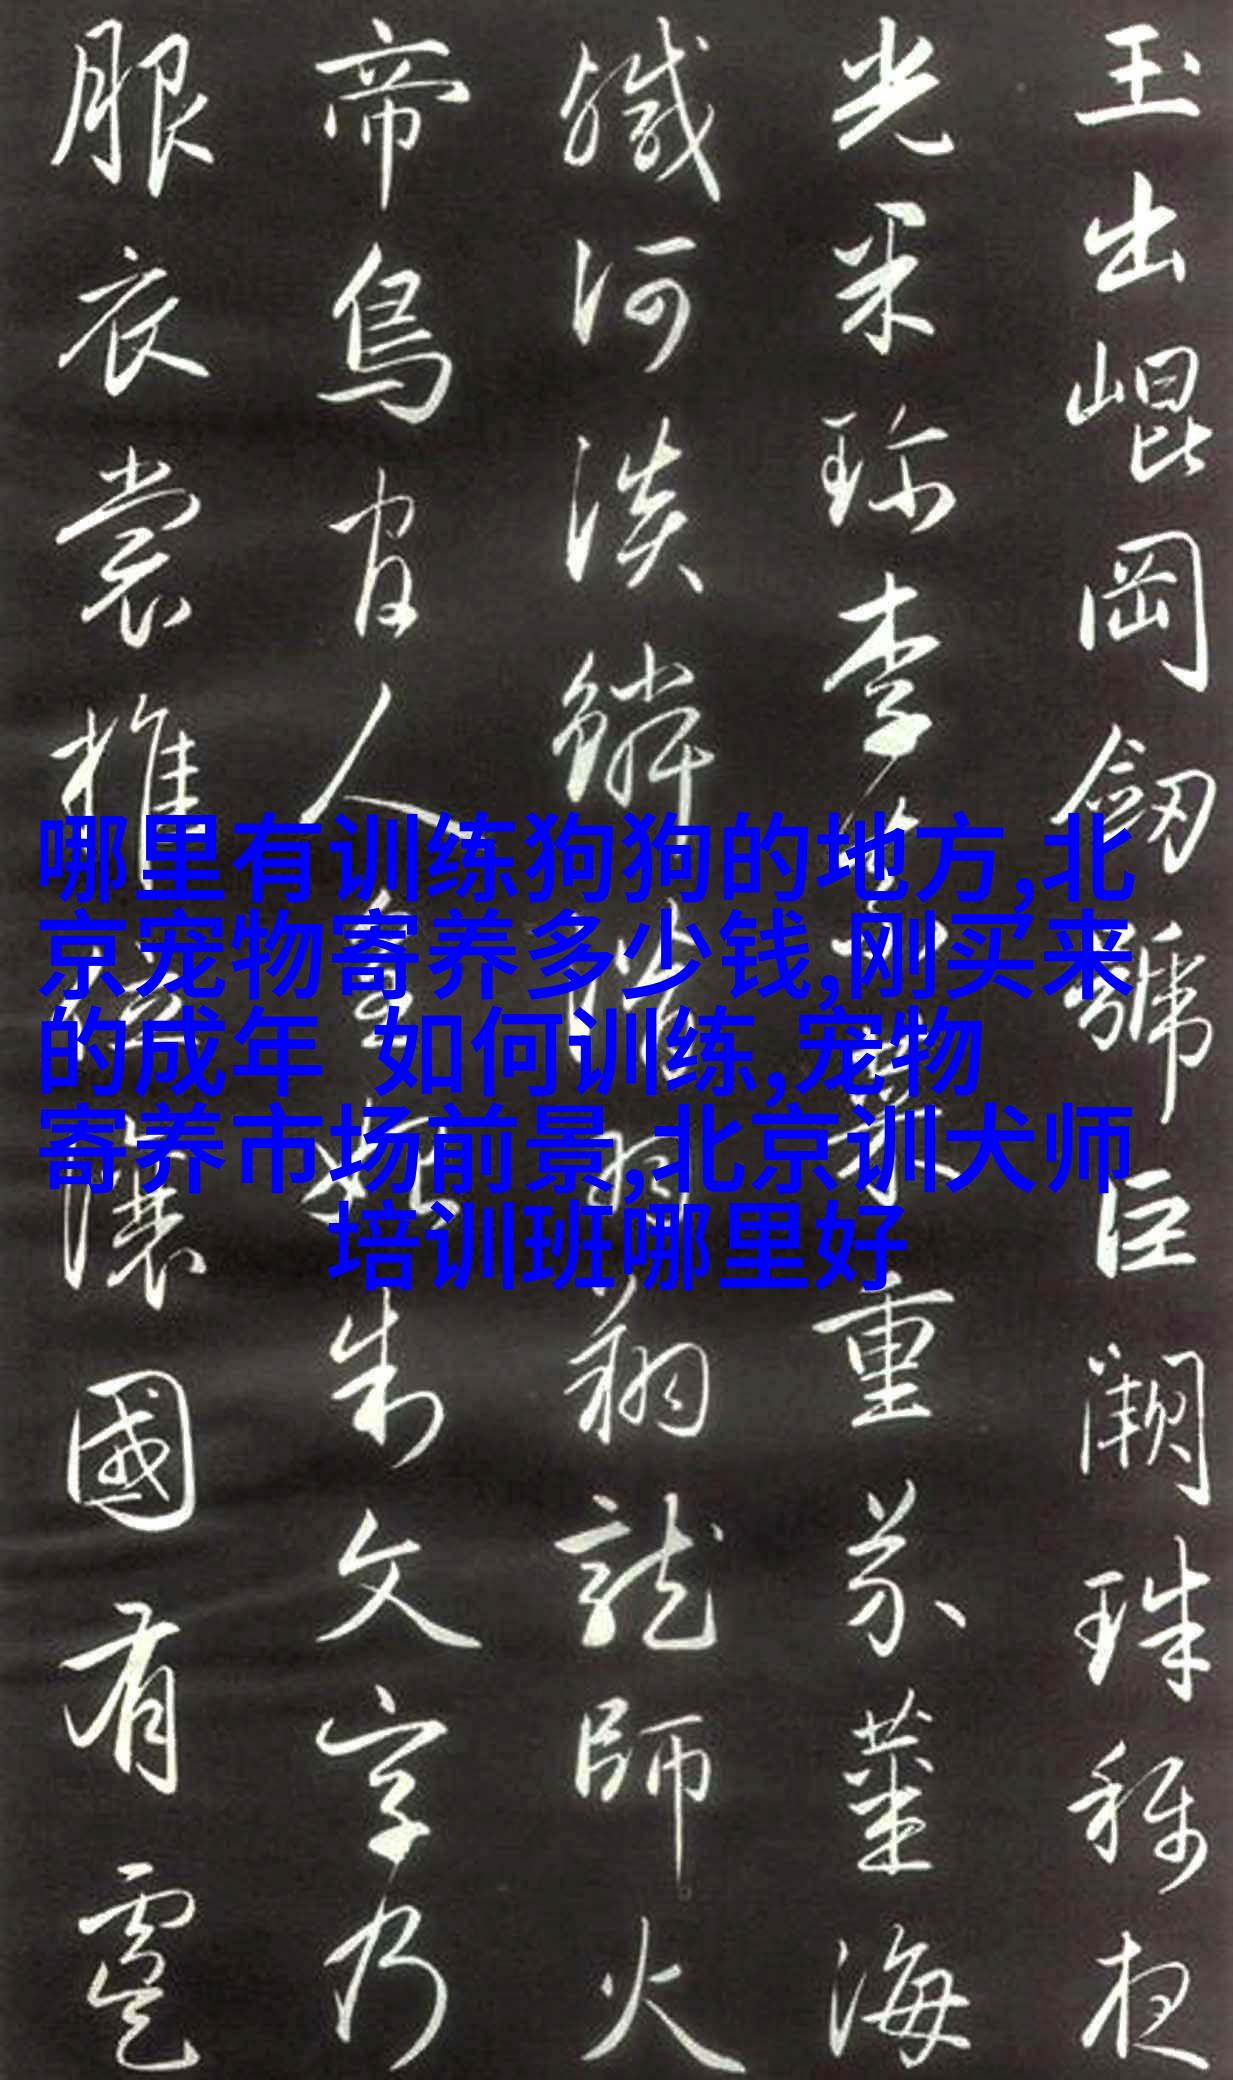 玉出崐岡劔號巨闕珠稱夜
光果珍李柰菜重芥薑海
鹹河淡鱗潛羽翔龍師火
帝鳥官人皇始制文字乃
服衣裳推位讓國有虞
哪里有训练狗狗的地方,北
京宠物寄养多少钱,刚买来
的成年 如何训练,宠物
寄养市场前景,北京训犬师
培训班哪里好